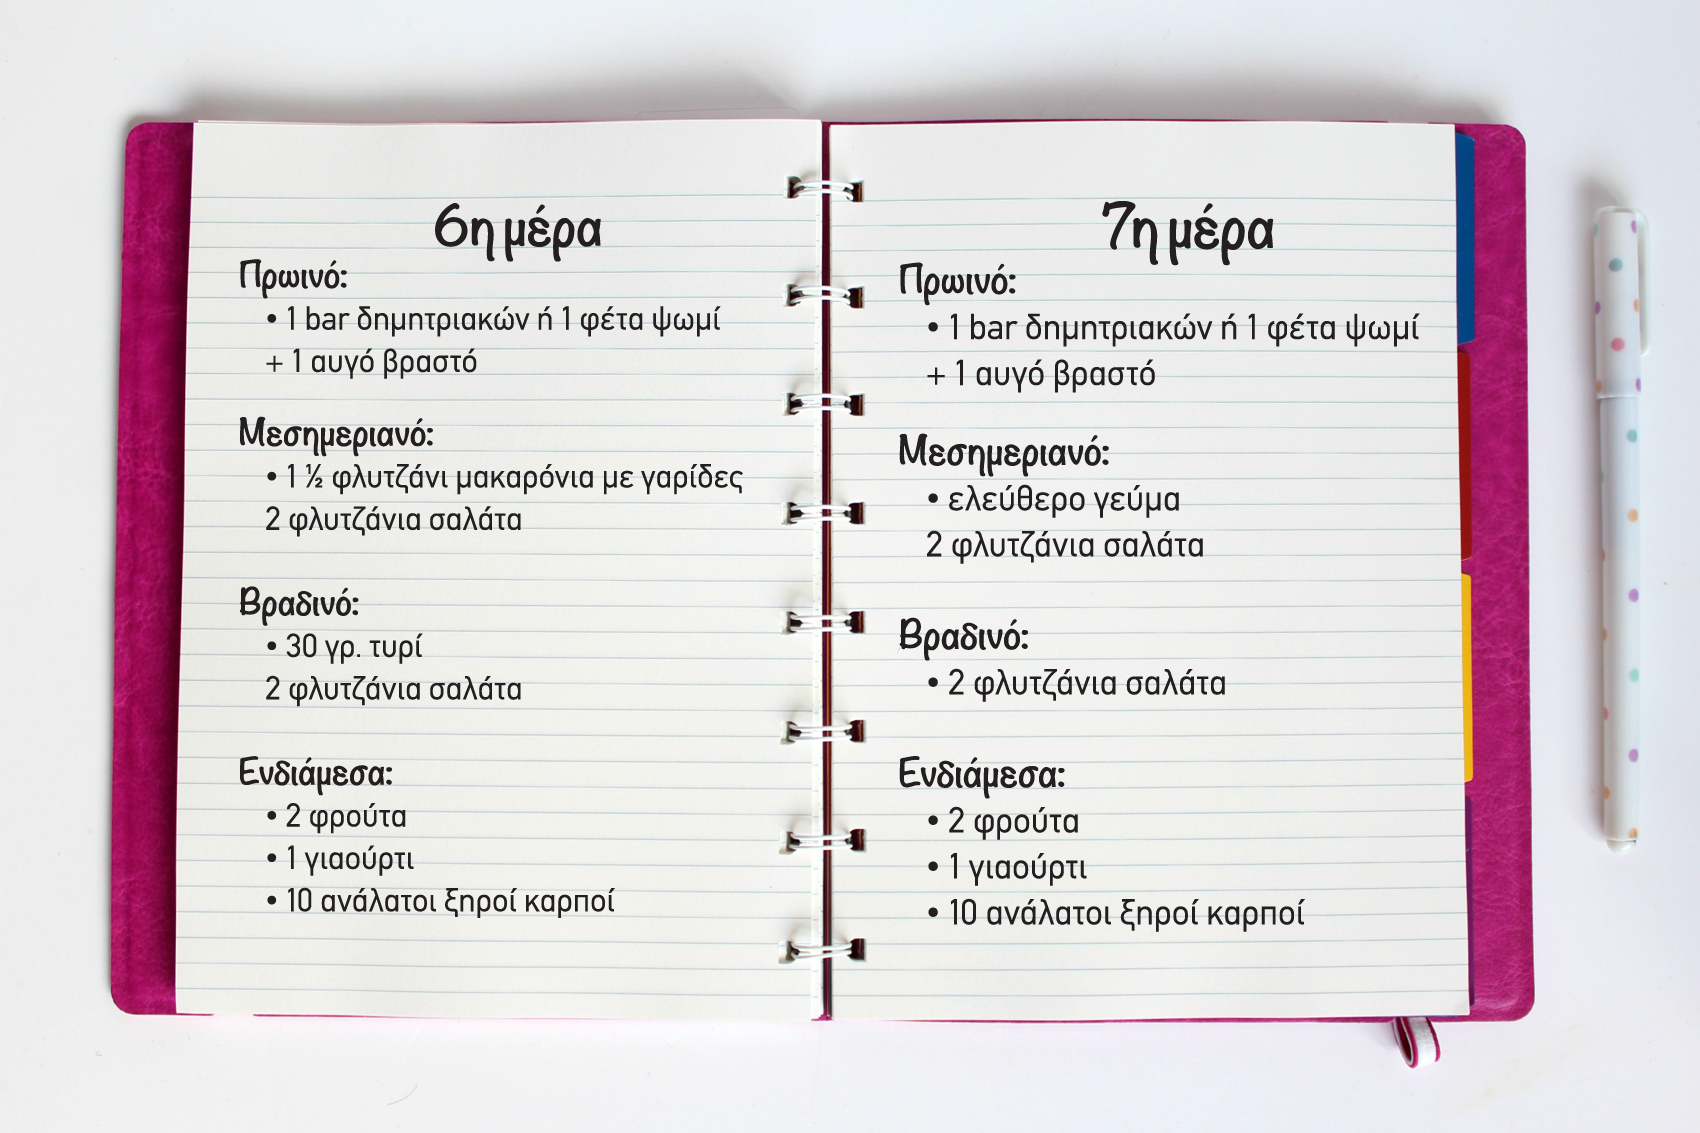 6η μέρα
Πρωινό:
• 1 bar δημητριακών ή 1 φέτα ψωμί
+ 1 αυγό βραστό
Μεσημεριανό:
• 1 ½ φλυτζάνι μακαρόνια με γαρίδες
2 φλυτζάνια σαλάτα
Βραδινό:
• 30 γρ. τυρί
2 φλυτζάνια σαλάτα
Ενδιάμεσα:
• 2 φρούτα
• 1 γιαούρτι
• 10 ανάλατοι ξηροί καρποί
7η μέρα
Πρωινό:
• 1 bar δημητριακών ή 1 φέτα ψωμί
+ 1 αυγό βραστό
Μεσημεριανό:
• ελεύθερο γεύμα
2 φλυτζάνια σαλάτα
Βραδινό:
• 2 φλυτζάνια σαλάτα
Ενδιάμεσα:
• 2 φρούτα
• 1 γιαούρτι
• 10 ανάλατοι ξηροί καρποί